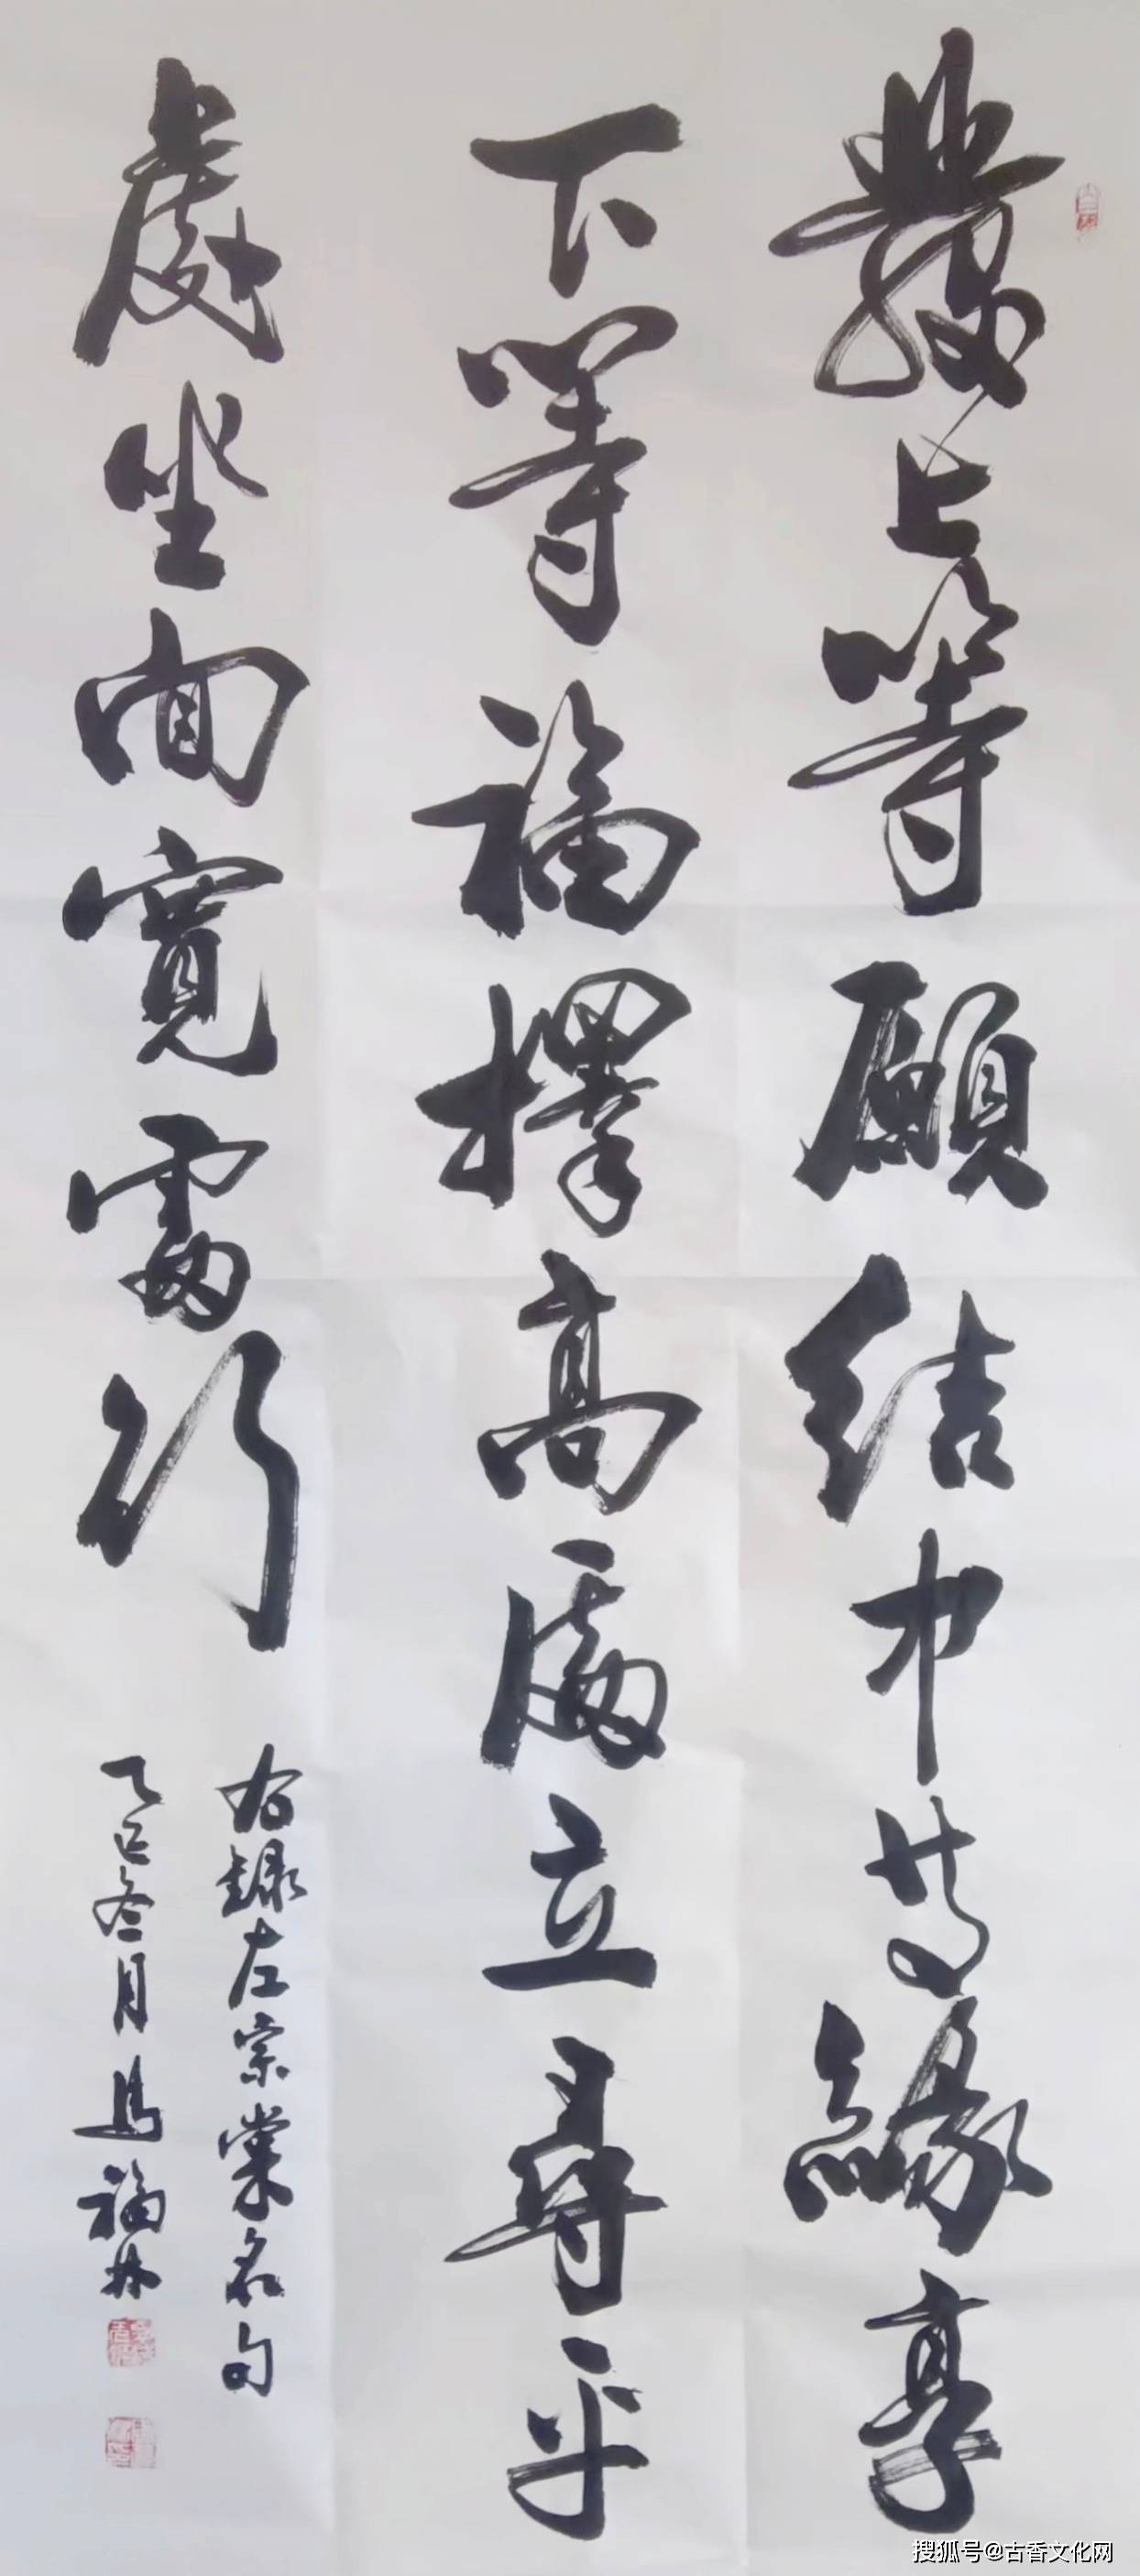 發上等願結中等緣享
下等福擇高處立尋平
處坐向寬處行
右錄左宗棠名句
乙巳冬月馬福林
搜狐号@古香文化网